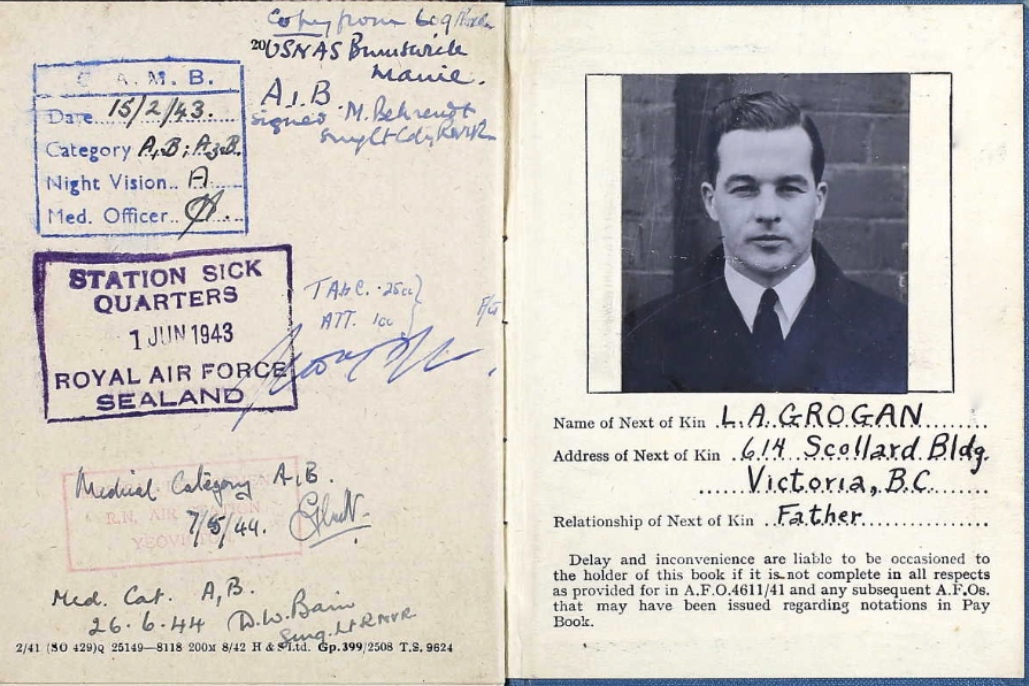 Copy from Log Book
20 USNAS Brunswick
Maine.
A1B
Signed M. Behrendt
Surg Lt Cdr, RNVR
C.A.M.B.
Date 15/2/43.
Category A1B; A3B.
Night Vision.. A
Med. Officer..
STATION SICK
QUARTERS
1 JUN 1943
ROYAL AIR FORCE
SEALAND
TABC. .25cc
ATT. 1cc
Medical Category A1B.
R.N. AIR STATION
7/5/44.
YEOVILTON
Med. Cat. A1B.
26.6.44 D.W. Bain
Surg. Lt RNVR
2/41 (SO 429)Q 25149—8118 200M 8/42 H & S Ltd. Gp.399/2508 T.S. 9624
Name of Next of Kin L.A. GROGAN
Address of Next of Kin 614 Scollard Bldg.
Victoria, B.C.
Relationship of Next of Kin Father
Delay and inconvenience are liable to be occasioned to
the holder of this book if it is not complete in all respects
as provided for in A.F.O.4611/41 and any subsequent A.F.Os.
that may have been issued regarding notations in Pay
Book.